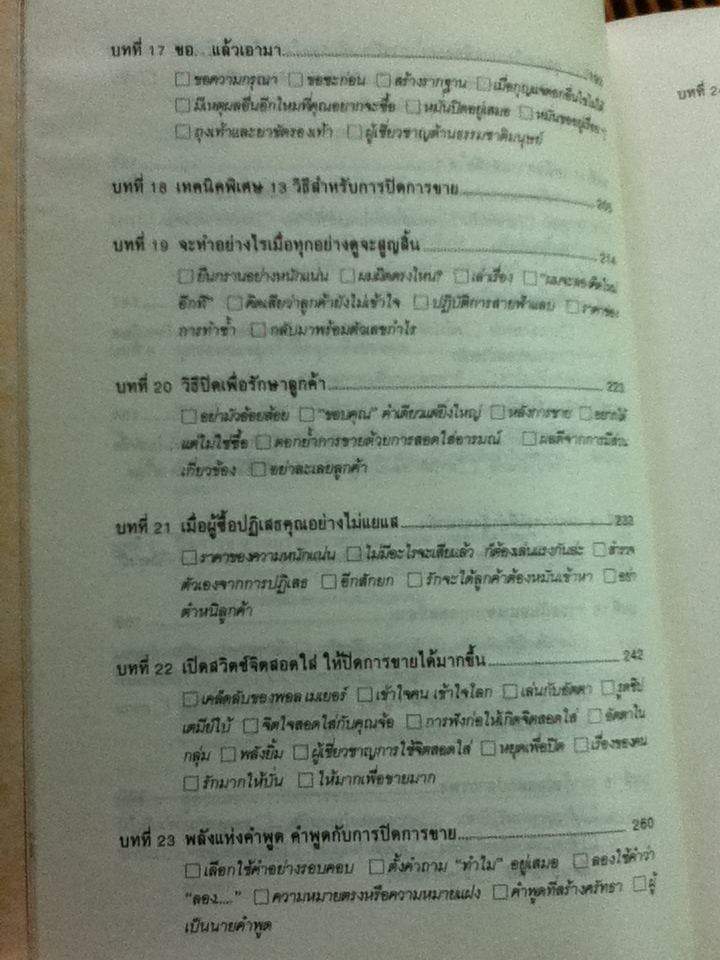 บทที่ 17 ขอ...แล้วเอามา
☐ ขอความกรุณา ☐ ขอซะก่อน ☐ สร้างรากฐาน ☐ เมื่อกุญแจดอกอื่นไขไม่ได้
☐ มีเหตุผลอื่นอีกไหมที่คุณอยากจะซื้อ ☐ หมั่นปิดอยู่เสมอ ☐ หมั่นขออยู่เรื่อย ๆ
☐ ถุงเท้าและยาขัดรองเท้า ☐ ผู้เชี่ยวชาญด้านธรรมชาติมนุษย์
บทที่ 18 เทคนิคพิเศษ 13 วิธีสำหรับการปิดการขาย
บทที่ 19 จะทำอย่างไรเมื่อทุกอย่างดูจะสูญสิ้น 214
☐ ยืนกรานอย่างหนักแน่น ☐ ผมผิดตรงไหน? ☐ เล่าเรื่อง ☐ "ผมจะลองคิดใหม่
อีกที" ☐ คิดเสียว่าลูกค้ายังไม่เข้าใจ ☐ ปฏิบัติการสายฟ้าแลบ ☐ ราคาของ
การทำซ้ำ ☐ กลับมาพร้อมตัวเลขกำไร
บทที่ 20 วิธีปิดเพื่อรักษาลูกค้า 223
☐ อย่ามัวอ้อยส้อย ☐ "ขอบคุณ" คำเดียวแต่ยิ่งใหญ่ ☐ หลังการขาย ☐ อยากได้
แต่ไม่ใช่ซื้อ ☐ ตอกย้ำการขายด้วยการสอดใส่อารมณ์ ☐ ผลดีจากการมีส่วน
เกี่ยวข้อง ☐ อย่าละเลยลูกค้า
บทที่ 21 เมื่อผู้ซื้อปฏิเสธคุณอย่างไม่แยแส 233
☐ ราคาของความหนักแน่น ☐ ไม่มีอะไรจะเสียแล้ว ก็ต้องเล่นแรงกันล่ะ ☐ สำรวจ
ตัวเองจากการปฏิเสธ ☐ อีกสักยก ☐ รักจะได้ลูกค้าต้องหมั่นเข้าหา ☐ อย่า
ตำหนิลูกค้า
บทที่ 22 เปิดสวิตช์จิตสอดใส่ ให้ปิดการขายได้มากขึ้น 242
☐ เคล็ดลับของพอล เมเยอร์ ☐ เข้าใจคน เข้าใจโลก ☐ เล่นกับอัตตา ☐ รูดซิป
เตมีย์ใบ้ ☐ จิตใจสอดใส่กับคุณจ้อ ☐ การฟังก่อให้เกิดจิตสอดใส่ ☐ อัตตาใน
กลุ่ม ☐ พลังยิ้ม ☐ ผู้เชี่ยวชาญการใช้จิตสอดใส่ ☐ หยุดเพื่อปิด ☐ เรื่องของคน
☐ รักมากให้บั่น ☐ ให้มากเพื่อขายมาก
บทที่ 23 พลังแห่งคำพูด คำพูดกับการปิดการขาย 260
☐ เลือกใช้คำอย่างรอบคอบ ☐ ตั้งคำถาม "ทำไม" อยู่เสมอ ☐ ลองใช้คำว่า
"ลอง...." ☐ ความหมายตรงหรือความหมายแฝง ☐ คำพูดที่สร้างศรัทธา ☐ ผู้
เป็นนายคำพูด
บทที่